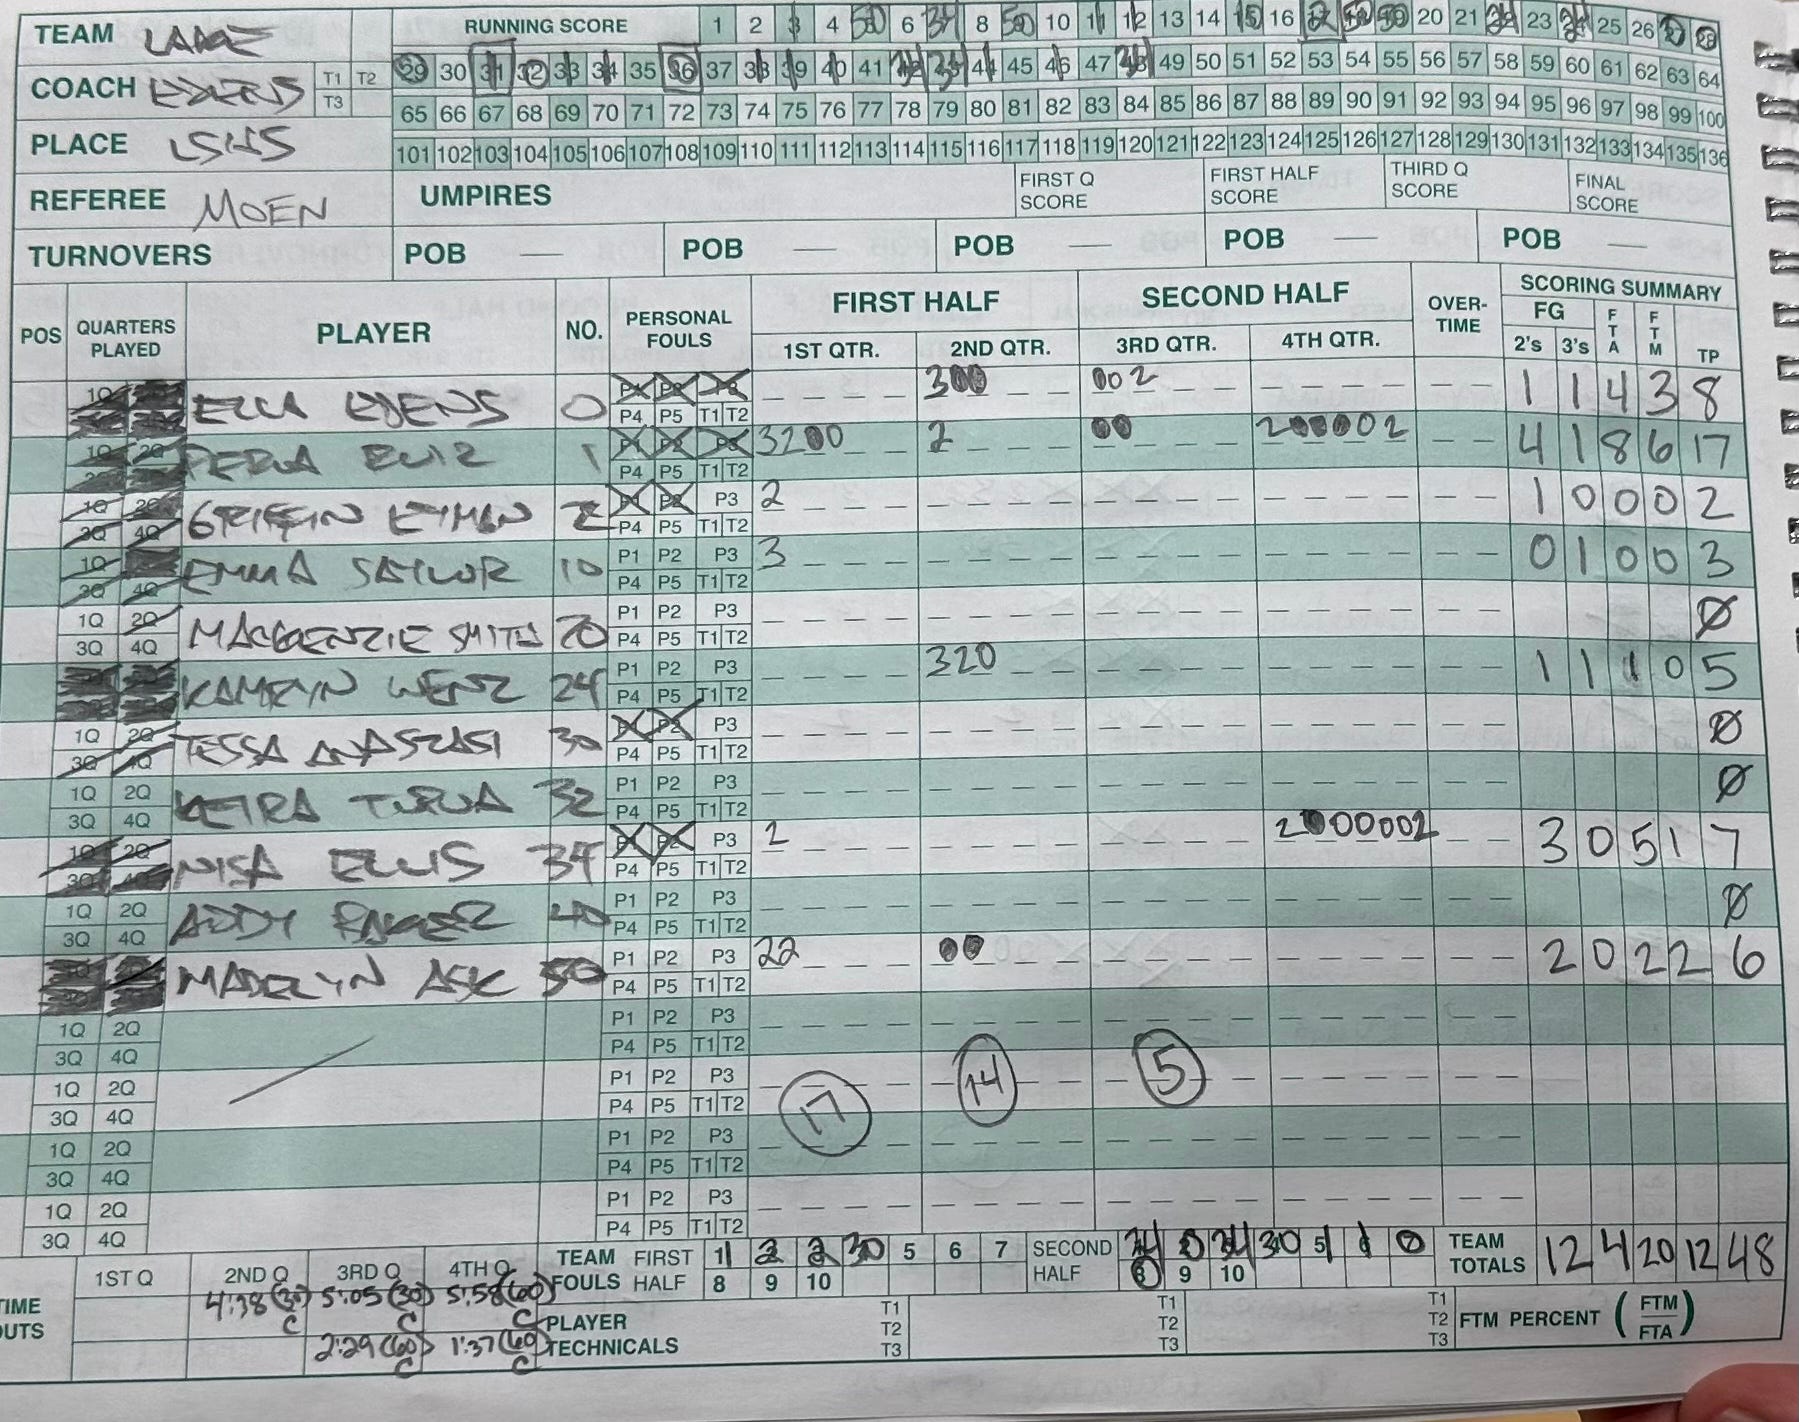 TEAM LAKE RUNNING SCORE 1 2 3 4 50 6 34 8 50 10 11 12 13 14 15 16 17 50 50 20 21 24 23 24 25 26 27 28
29 30 31 32 33 34 35 36 37 38 39 40 41 34 34 44 45 46 47 34 49 50 51 52 53 54 55 56 57 58 59 60 61 62 63 64
COACH EDENS T1 T2 T3
65 66 67 68 69 70 71 72 73 74 75 76 77 78 79 80 81 82 83 84 85 86 87 88 89 90 91 92 93 94 95 96 97 98 99 100
PLACE LSHS
101 102 103 104 105 106 107 108 109 110 111 112 113 114 115 116 117 118 119 120 121 122 123 124 125 126 127 128 129 130 131 132 133 134 135 136
REFEREE MOEN UMPIRES FIRST Q SCORE FIRST HALF SCORE THIRD Q SCORE FINAL SCORE
TURNOVERS POB — POB — POB — POB — POB —
POS QUARTERS PLAYED PLAYER NO. PERSONAL FOULS FIRST HALF SECOND HALF OVER-TIME SCORING SUMMARY
1ST QTR. 2ND QTR. 3RD QTR. 4TH QTR. FG 2's 3's FTA FTM TP
1Q ELLA EDENS 0 P1 P2 P3 300 002 1 1 4 3 8
P4 P5 T1 T2
1Q 2Q PERLA RUIZ 1 P1 P2 P3 3200 2 00 200002 4 1 8 6 17
P4 P5 T1 T2
1Q 2Q GRIFFIN ETHUN 2 P1 P2 P3 2 1 0 0 0 2
3Q 4Q P4 P5 T1 T2
1Q EMMA SAYLOR 10 P1 P2 P3 3 0 1 0 0 3
3Q 4Q P4 P5 T1 T2
1Q 2Q MACKENZIE SMITH 20 P1 P2 P3 0
3Q 4Q P4 P5 T1 T2
KAMRYN WENZ 24 P1 P2 P3 320 1 1 1 0 5
P4 P5 T1 T2
1Q 2Q TESSA ANASTASI 30 P1 P2 P3 0
3Q 4Q P4 P5 T1 T2
1Q 2Q KEIRA 32 P1 P2 P3 0
3Q 4Q P4 P5 T1 T2
1Q 2Q NISA ELLIS 34 P1 P2 P3 2 2000002 3 0 5 1 7
3Q 4Q P4 P5 T1 T2
1Q 2Q ADDY 40 P1 P2 P3 0
3Q 4Q P4 P5 T1 T2
MADELYN ASK 50 P1 P2 P3 22 00 2 0 2 2 6
P4 P5 T1 T2
1Q 2Q P1 P2 P3
3Q 4Q P4 P5 T1 T2
1Q 2Q P1 P2 P3 17 14 5
3Q 4Q P4 P5 T1 T2
1Q 2Q P1 P2 P3
3Q 4Q P4 P5 T1 T2
1Q 2Q P1 P2 P3
3Q 4Q P4 P5 T1 T2
TIME OUTS 1ST Q 2ND Q 3RD Q 4TH Q TEAM FOULS FIRST HALF 1 2 2 30 5 6 7 SECOND HALF 34 0 34 30 1 1 0 TEAM TOTALS 12 4 20 12 48
8 9 10 8 9 10
4:38 (30) C 5:05 (30) C 5:58 (60) C
2:29 (60) C 1:37 (60) C PLAYER TECHNICALS T1 T2 T3 T1 T2 T3 T1 T2 T3 FTM PERCENT (FTM/FTA)